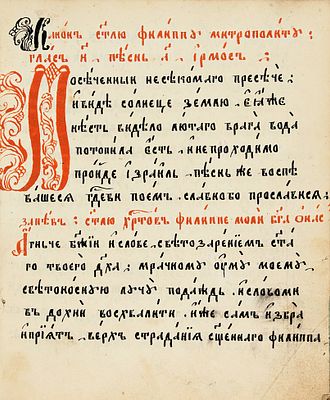 Канонъ ст҃лю филиппу митрополиту:
гласъ и҃ пѣснь а҃ ірмосъ:
Посѣченыи несѣкомаго пресѣче:
ивидѣ солнеце землю еѧже
нѣсть видѣло лютаго врага вода
потопила есть. инепроходимо
проиде ізраиль. пѣснь же воспѣ
вашеся гд҃еви поем. славнобо прославися:
запѣв: ст҃лю хр҃товъ филиппе моли бг҃а онас
Агньче бж҃ии ислове, свѣтозарѣнием ст҃а
го твоего дх҃а: мрачному оуму моему
свѣтоносную лучу подаждь, ислооми
въ дохни восхвалити. иже самъ избра
иприѧтъ. верхъ страдания сщ҃еннаго филиппа